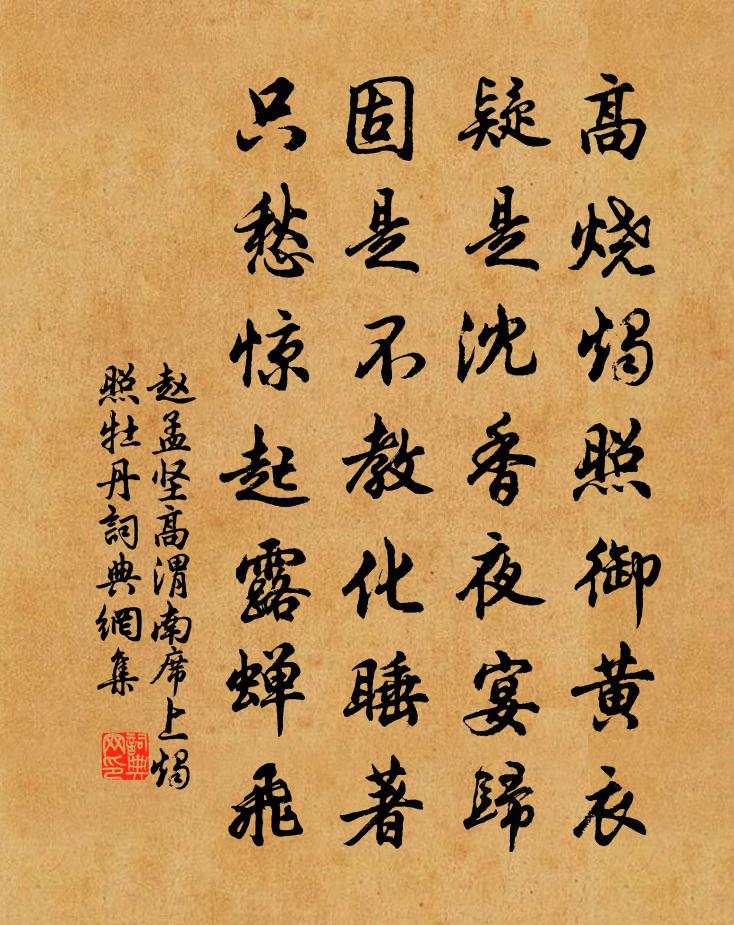 高烧烛照御黄衣
疑是沈香夜宴歸
固是不教化睡著
只愁惊起露蝉飛
赵孟坚高渭南席上烛
照牡丹詞典網集
詞典
网印